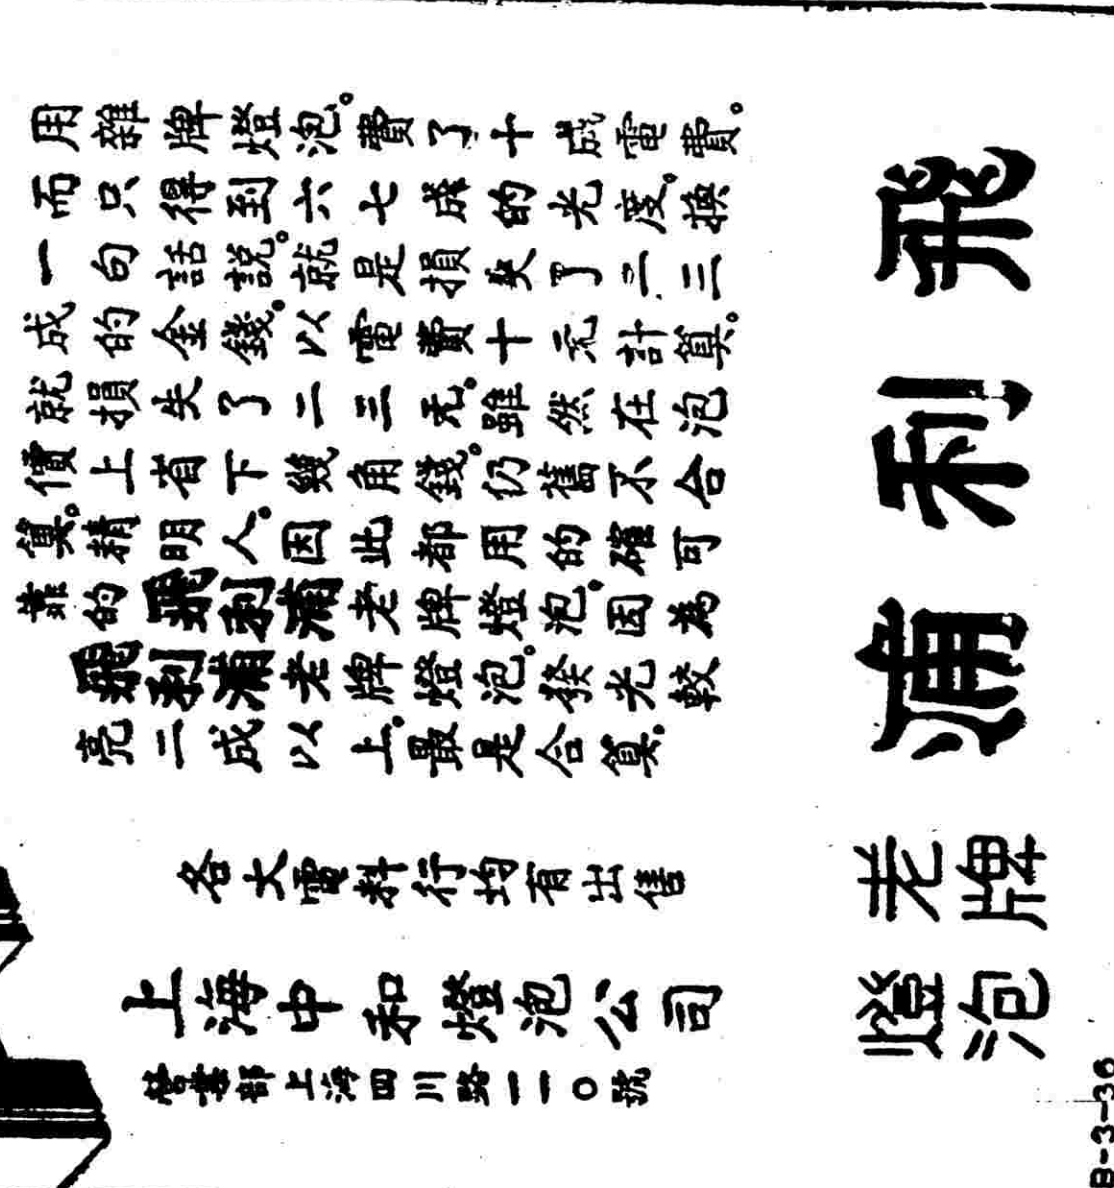 用雜牌燈泡。費了十成電費。
而只得到六七成的光度。換
一句話說。就是損失了二三
成的金錢。以電費十元計算。
就損失了二三元。雖然在泡
價上省下幾角錢。仍舊不合
算。精明人。因此都用的確可
靠的飛利浦老牌燈泡。因為
飛利浦老牌燈泡。發光較
亮二成以上。最是合算。
各大電料行均有出售
上海中和燈泡公司
營業部上海四川路一一〇號
飛利浦
老牌
燈泡
B-3-36